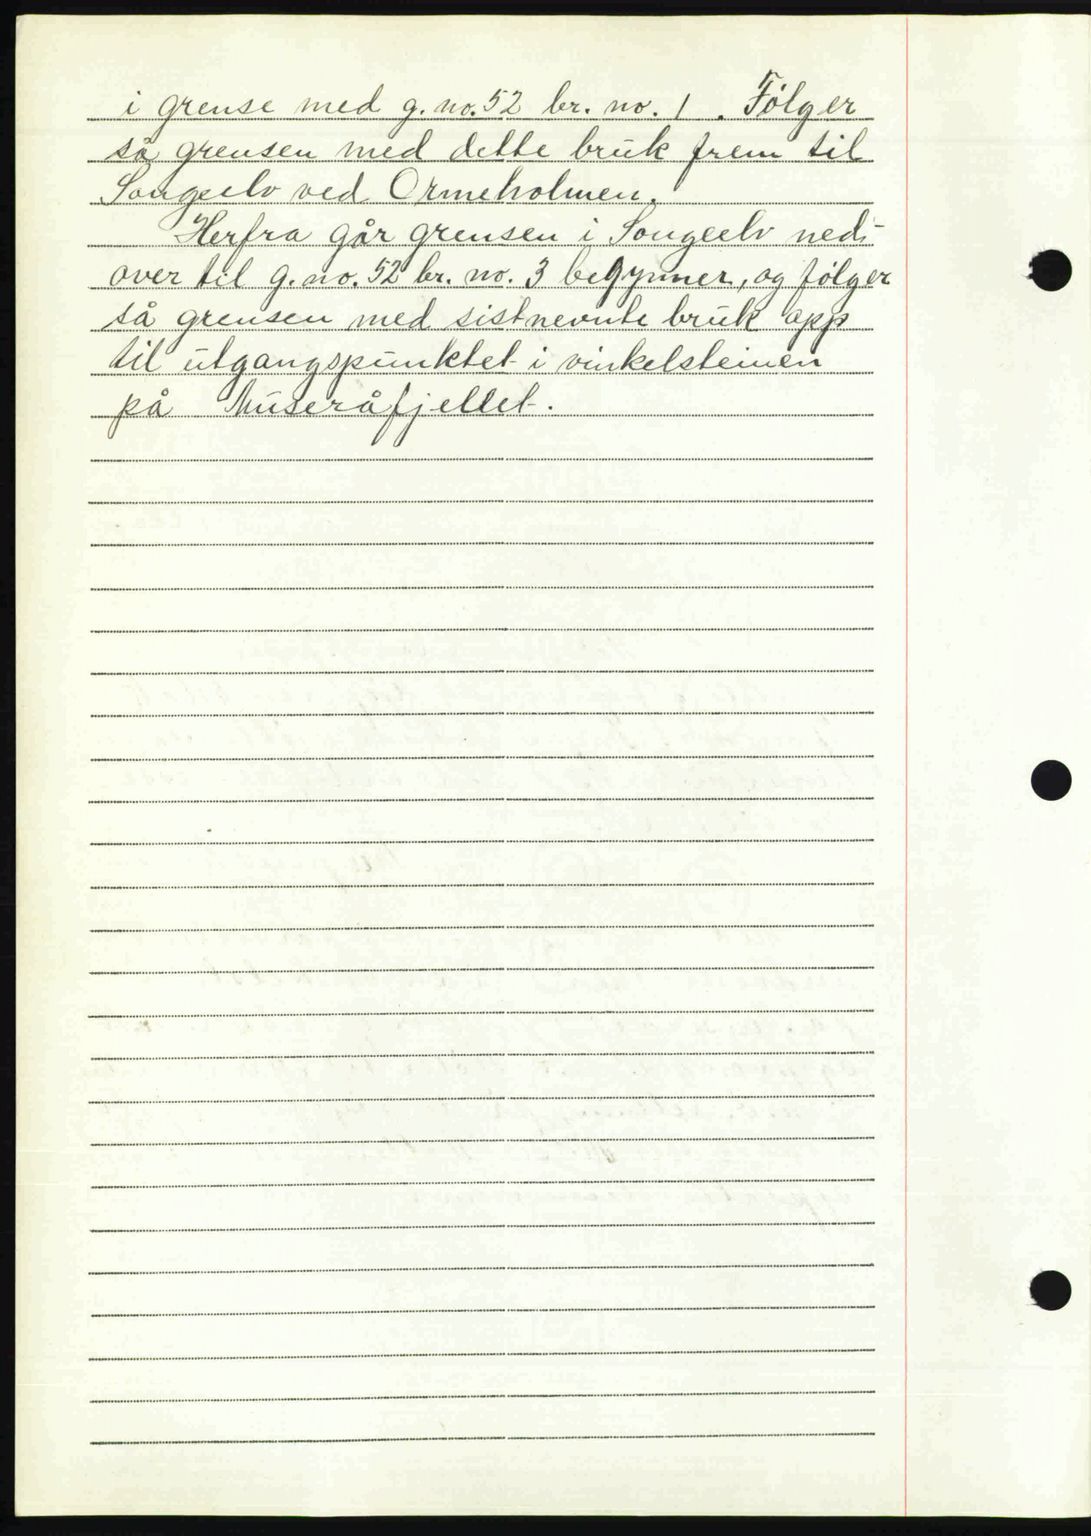 i grense med g. no. 52 br. no. 1 . Følger
så grensen med dette bruk frem til
Songeelv ved Ormeholmen.
Herfra går grensen i Songeelv ned-
over til g. no. 52 br. no. 3 begynner, og følger
så grensen med sistnevnte bruk opp
til utgangspunktet i vinkelsteinen
på Museråfjellet.